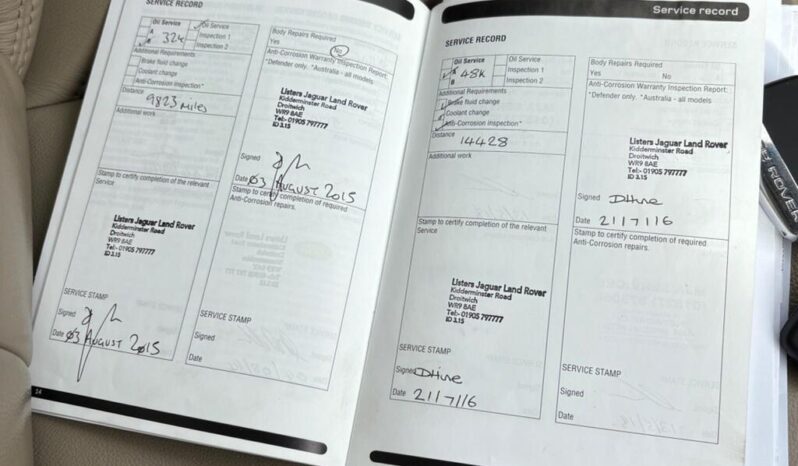 SERVICE RECORD
Oil Service
A
B 32K
Oil Service
Inspection 1
Inspection 2
Additional Requirements
Brake fluid change
Coolant change
Anti-corrosion inspection*
Distance
9823 MILES
Additional work
Stamp to certify completion of the relevant
Service
Listers Jaguar Land Rover
Kidderminster Road
Droitwich
WR9 8AE
Tel:- 01905 797777
ID 3.15
SERVICE STAMP
Signed
Date 03 AUGUST 2015
34
Body Repairs Required
Yes No
Anti-Corrosion Warranty Inspection Report:
*Defender only. *Australia - all models
Listers Jaguar Land Rover
Kidderminster Road
Droitwich
WR9 8AE
Tel:- 01905 797777
ID 3.15
Signed
Date 03 AUGUST 2015
Stamp to certify completion of required
Anti-Corrosion repairs.
SERVICE STAMP
Signed
Date
Service record
SERVICE RECORD
Oil Service
48K
B
Inspection 1
Inspection 2
Additional Requirements
Brake fluid change
Coolant change
Anti-corrosion inspection*
Distance
14428
Additional work
Stamp to certify completion of the relevant
Service
Listers Jaguar Land Rover
Kidderminster Road
Droitwich
WR9 8AE
Tel:- 01905 797777
ID 3.15
SERVICE STAMP
Signed
Date 21/7/16
Body Repairs Required
Yes No
Anti-Corrosion Warranty Inspection Report:
*Defender only. *Australia - all models
Listers Jaguar Land Rover
Kidderminster Road
Droitwich
WR9 8AE
Tel:- 01905 797777
ID 3.15
Signed
Date 21/7/16
Stamp to certify completion of required
Anti-Corrosion repairs.
SERVICE STAMP
Signed
Date
ROVER